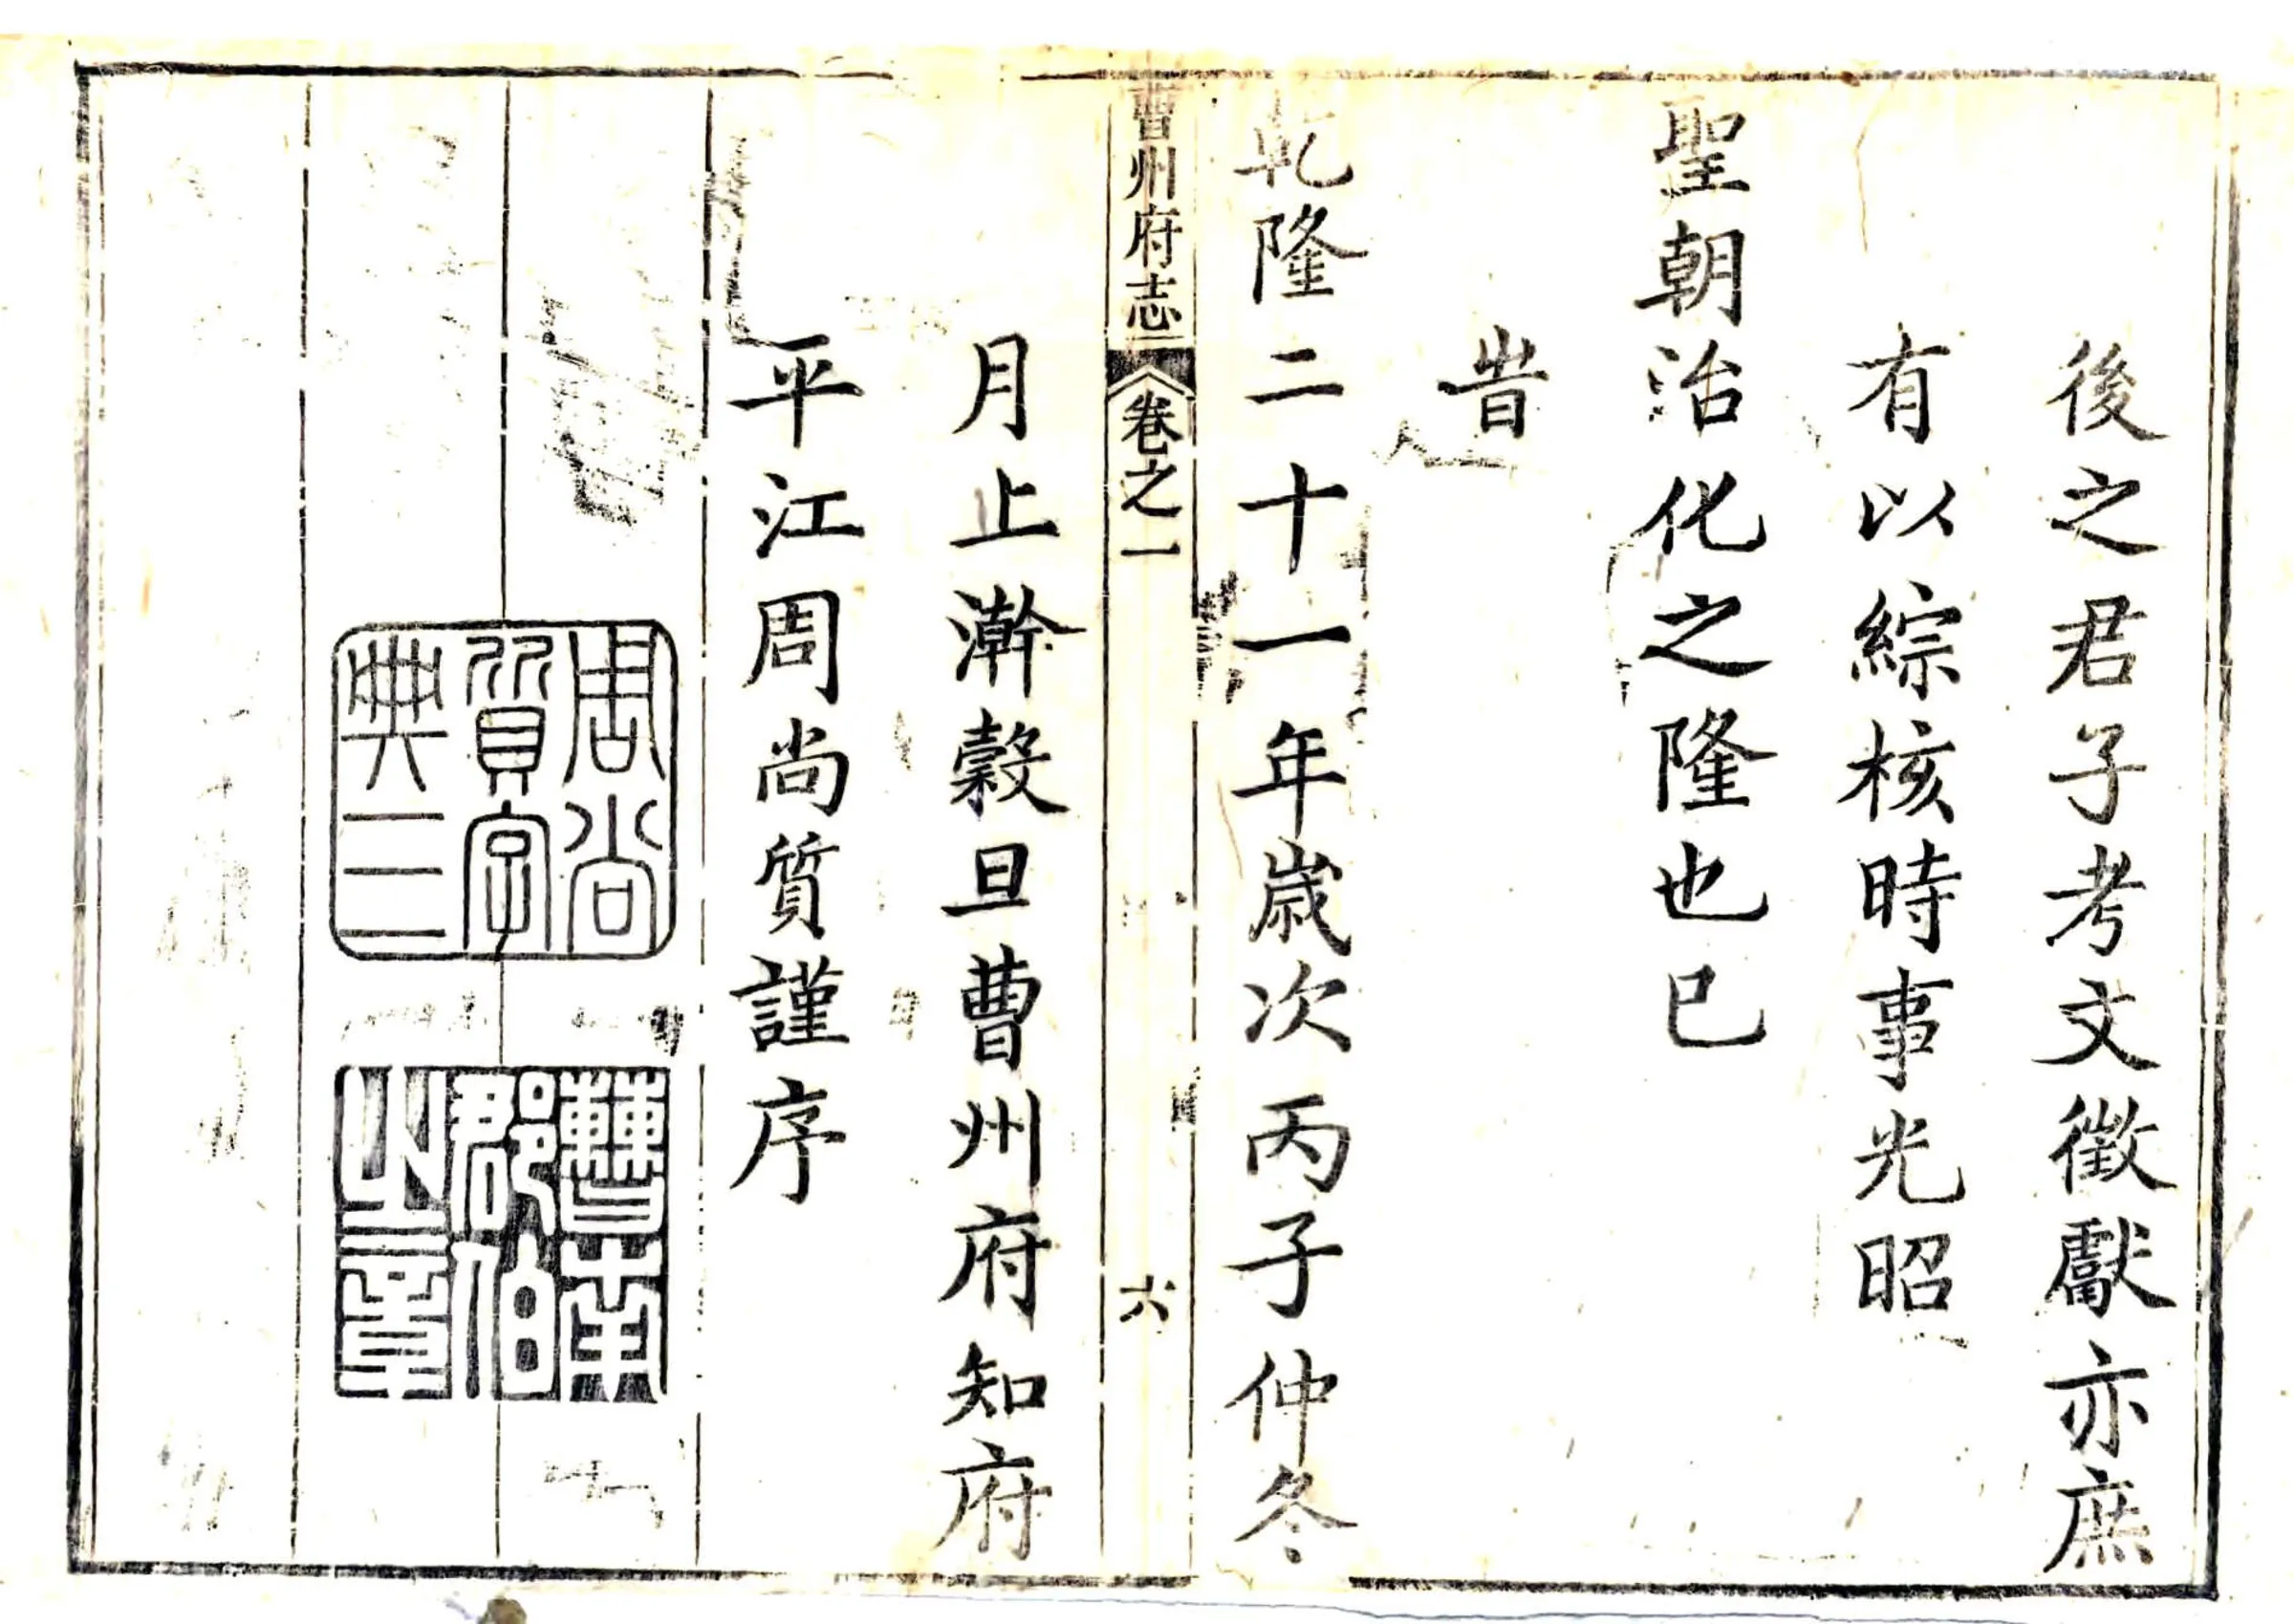 後之君子考文徵獻亦庶
有以綜核時事光昭
聖朝治化之隆也已
旹
乾隆二十一年歲次丙子仲冬
曹州府志
卷之一
六
月上澣穀旦曹州府知府
平江周尚質謹序
周尚
質字
典三
曹南
郡伯
之章